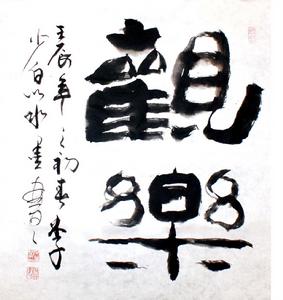 觀樂
壬辰年之初春李
少白以水墨書之